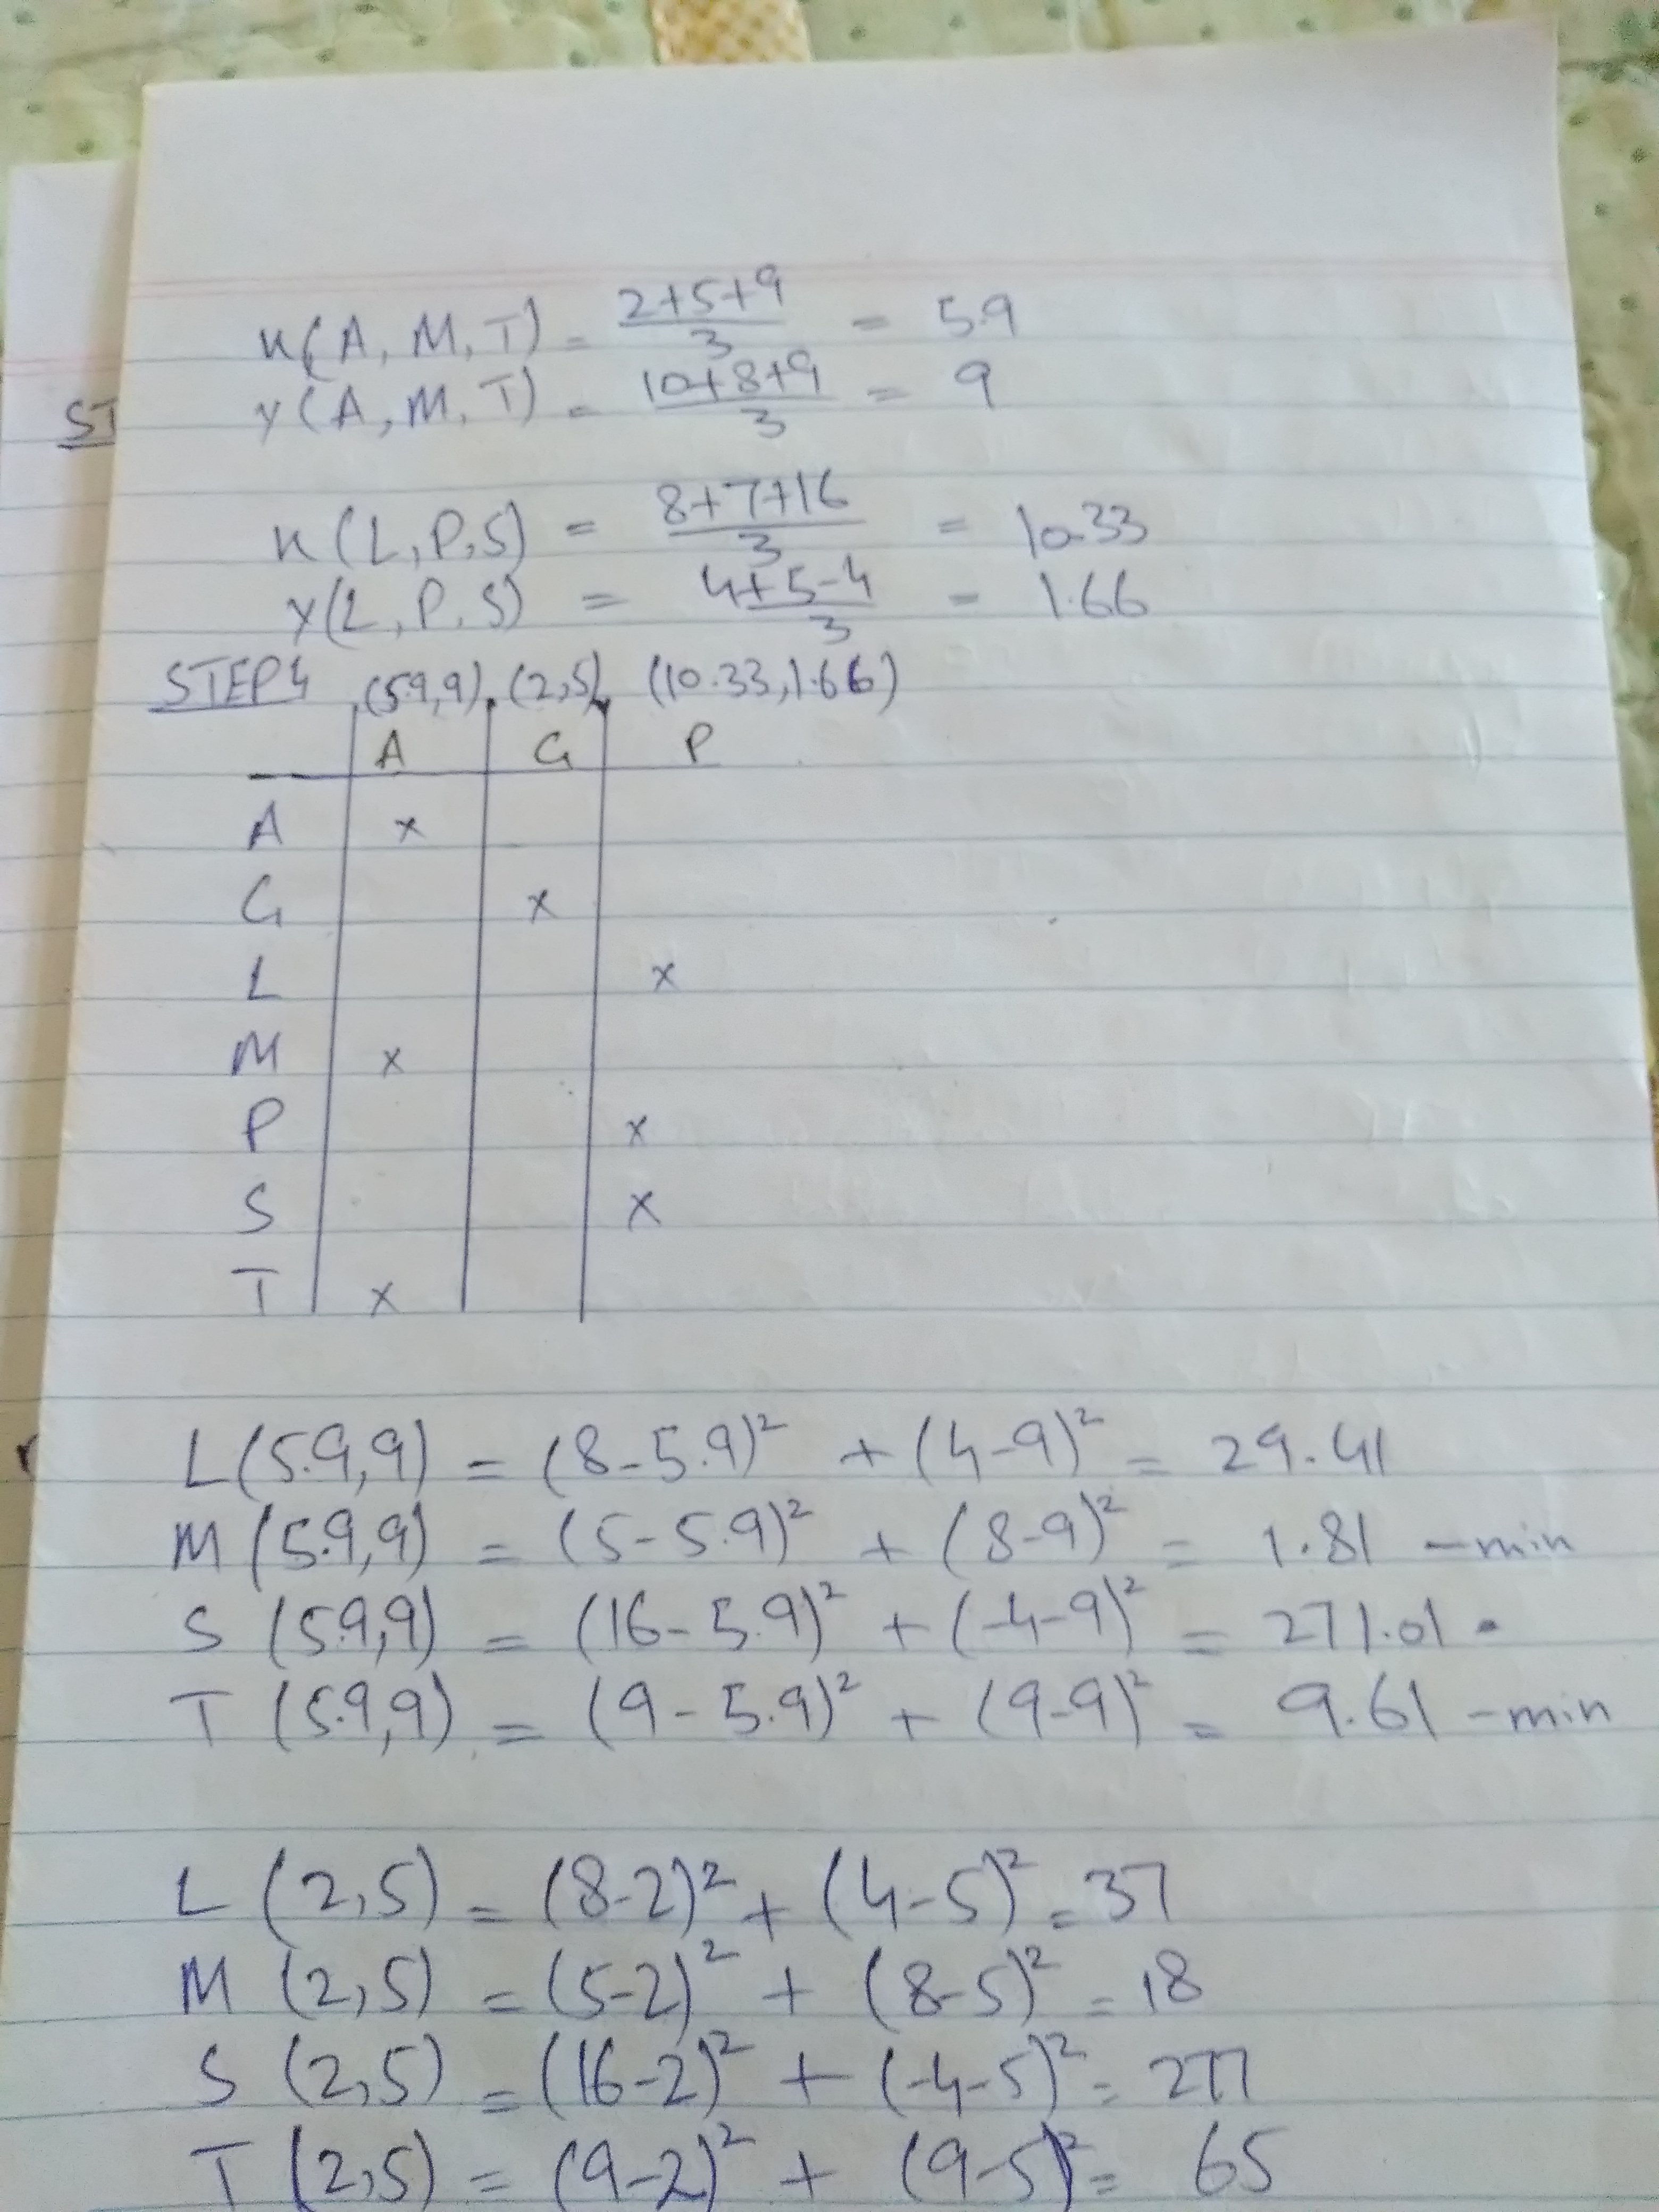 x(A, M, T) = 2+5+9/3 = 5.9
y(A, M, T) = 10+8+9/3 = 9
ST
x(L, P, S) = 8+7+16/3 = 10.33
y(L, P, S) = 4+5-4/3 = 1.66
STEP 4 (5.9, 9), (2,5), (10.33, 1.66)
A G P
A x
G x
L x
M x
P x
S x
T x
L (5.9, 9) = (8-5.9)² + (4-9)² = 29.41
M (5.9, 9) = (5-5.9)² + (8-9)² = 1.81 - min
S (5.9, 9) = (16-5.9)² + (-4-9)² = 271.01
T (5.9, 9) = (9-5.9)² + (9-9)² = 9.61 - min
L (2,5) = (8-2)² + (4-5)² = 37
M (2,5) = (5-2)² + (8-5)² = 18
S (2,5) = (16-2)² + (-4-5)² = 277
T (2,5) = (9-2)² + (9-5)² = 65